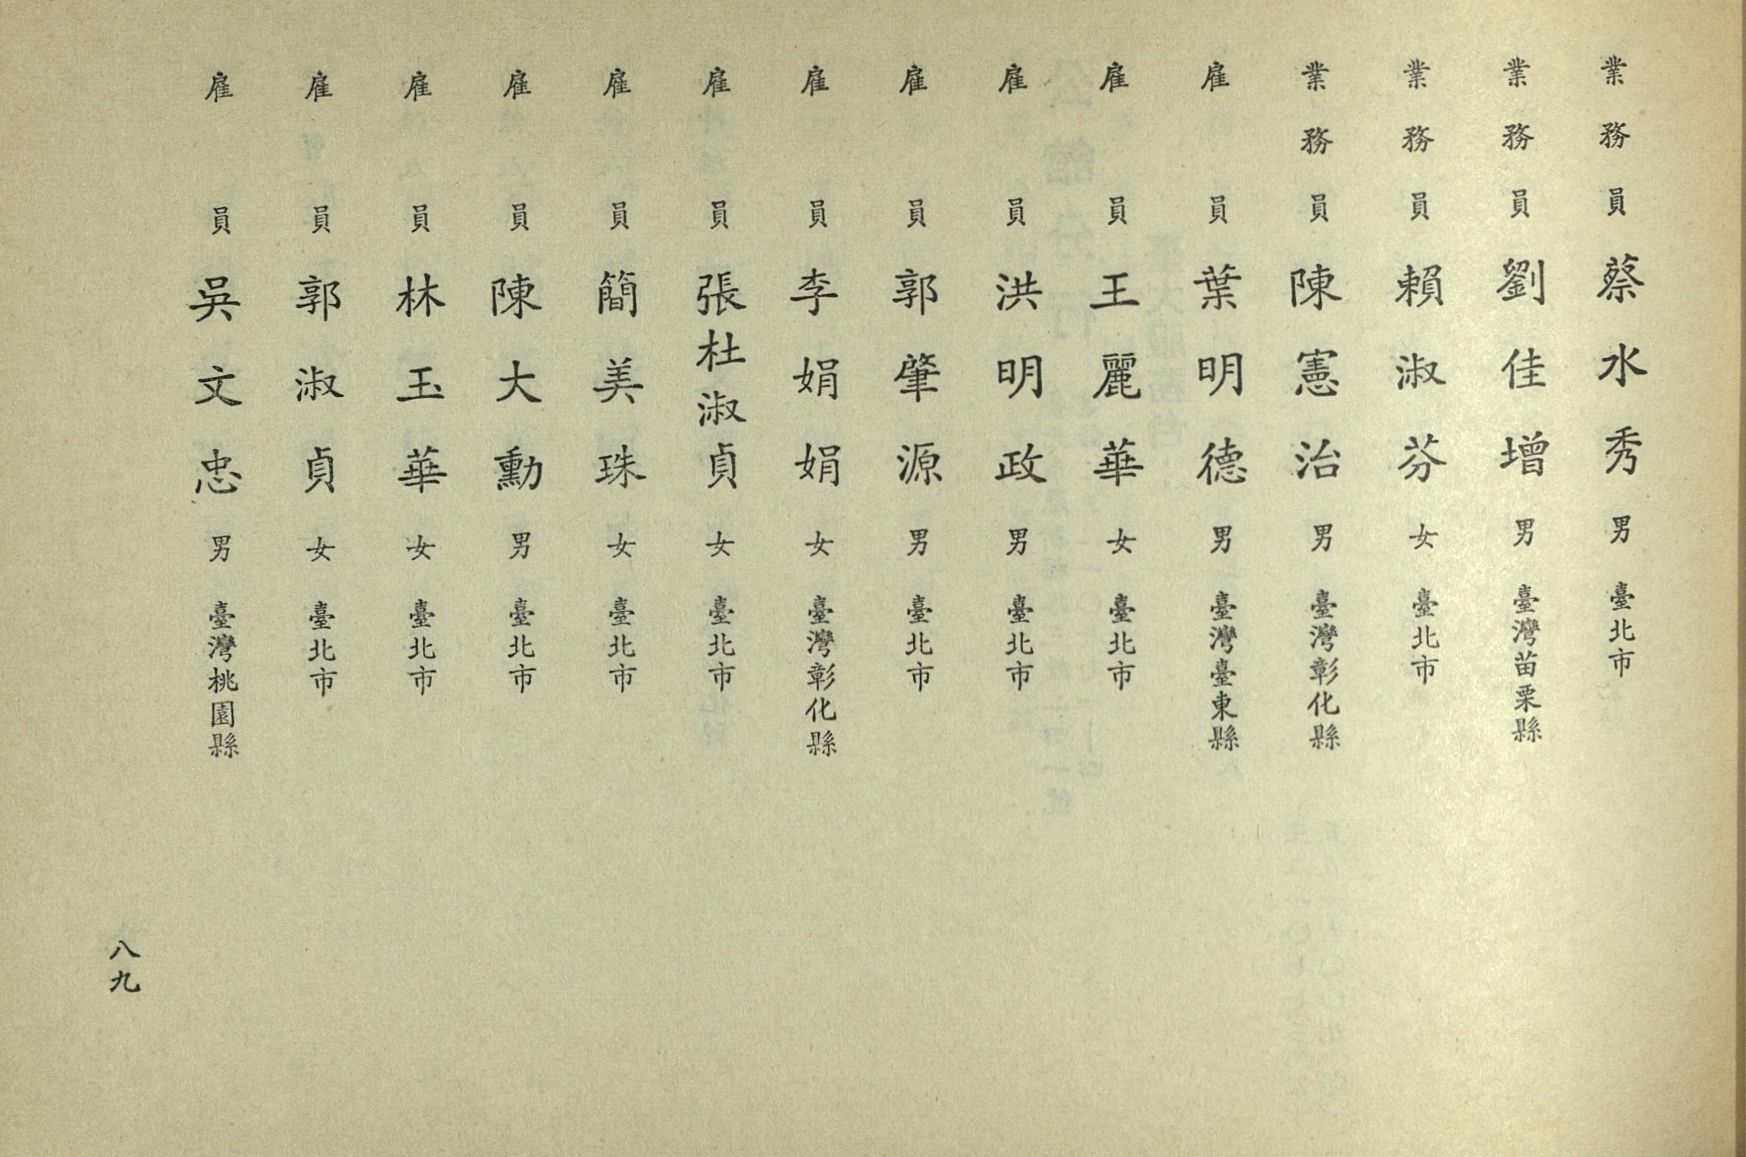 業務員 蔡水秀 男 臺北市
業務員 劉佳增 男 臺灣苗栗縣
業務員 賴淑芬 女 臺北市
業務員 陳憲治 男 臺灣彰化縣
雇員 葉明德 男 臺灣臺東縣
雇員 王麗華 女 臺北市
雇員 洪明政 男 臺北市
雇員 郭肇源 男 臺北市
雇員 李娟娟 女 臺灣彰化縣
雇員 張杜淑貞 女 臺北市
雇員 簡美珠 女 臺北市
雇員 陳大勳 男 臺北市
雇員 林玉華 女 臺北市
雇員 郭淑貞 女 臺北市
雇員 吳文忠 男 臺灣桃園縣
八九